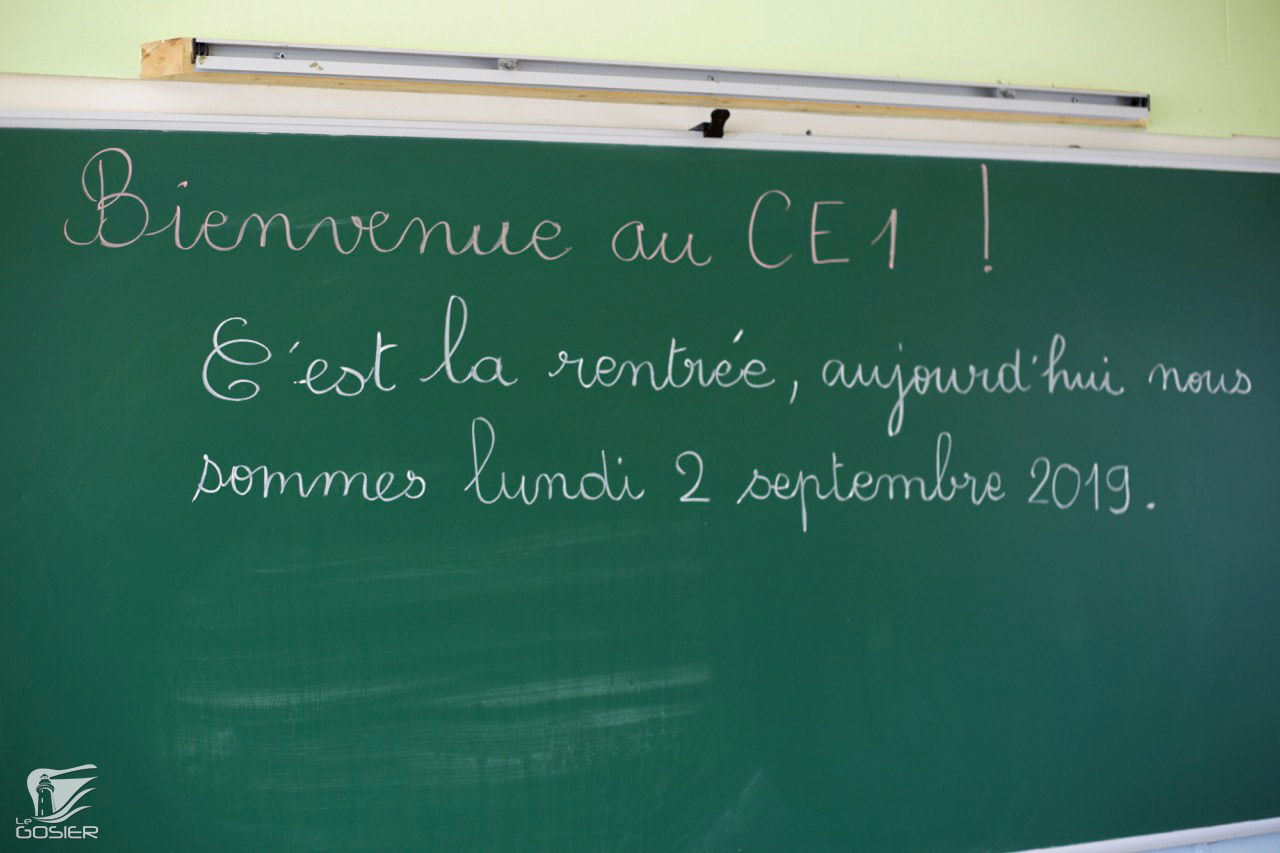 Bienvenue au CE1 !
C'est la rentrée, aujourd'hui nous
sommes lundi 2 septembre 2019.
Le
GOSIER